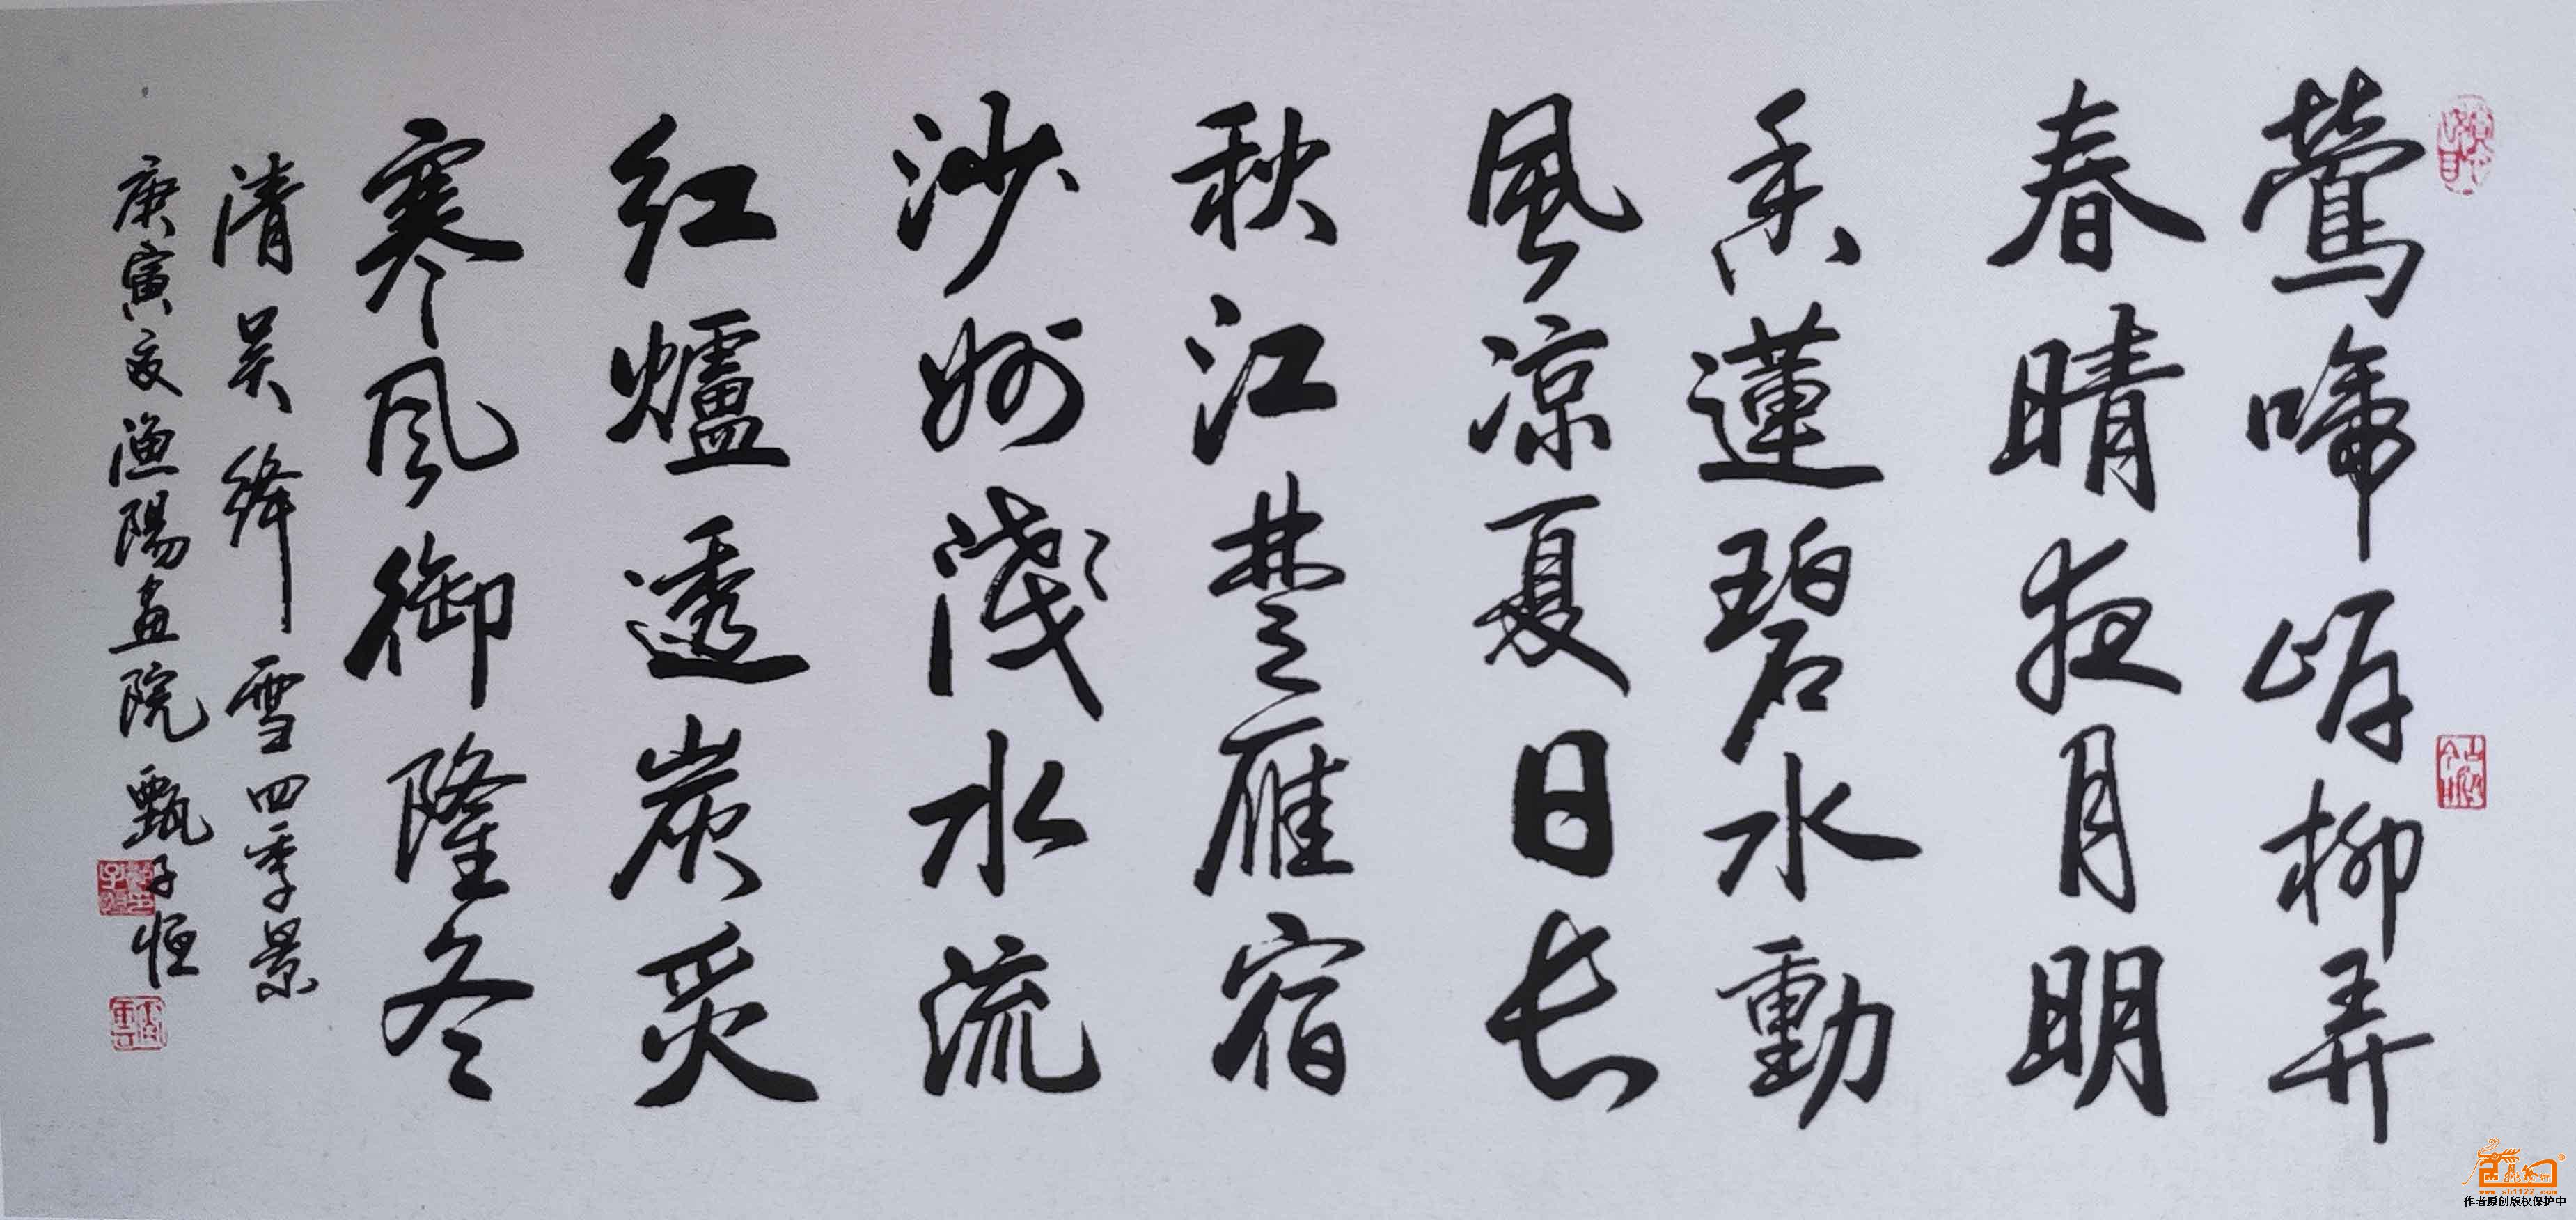 莺啼岸柳弄
春晴夜月明
香蓮碧水動
風凉夏日长
秋江楚雁宿
沙州浅水流
红爐透炭炙
寒风御隆冬
清吴绛雪四季景
庚寅夏渔陽画院甄子恒
www.sh1122.com
作者原创版权保护中